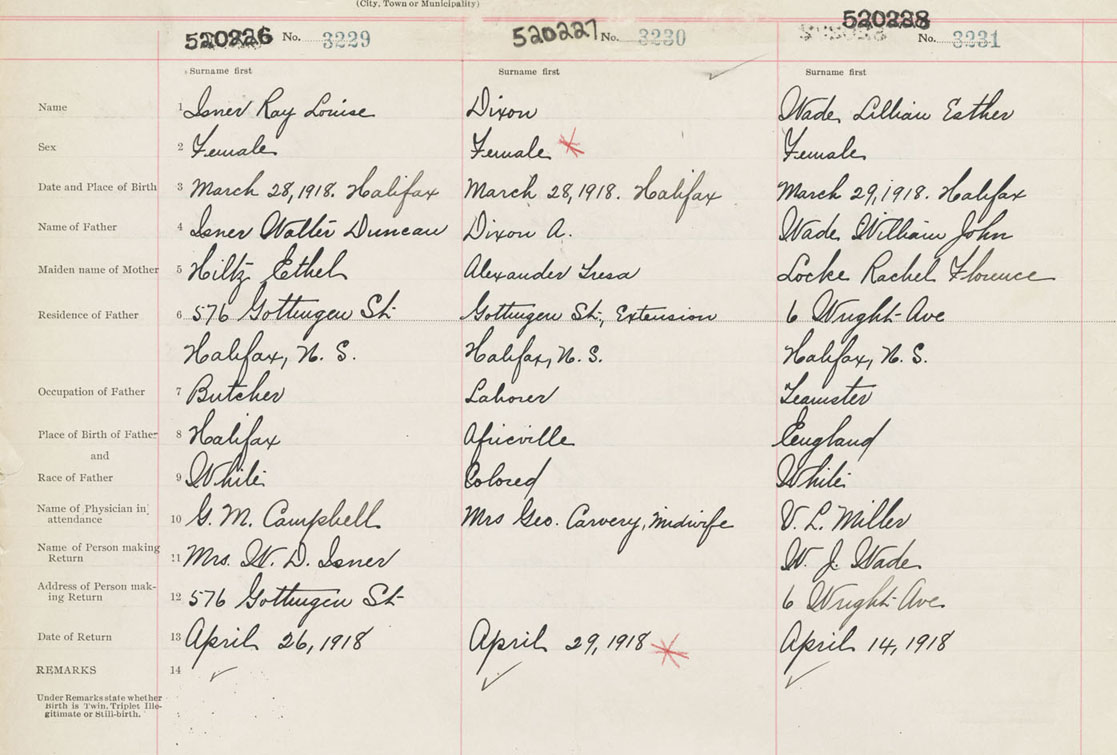 (City, Town or Municipality)
520226 No. 3229 520227 No. 3230 520228 No. 3231
Surname first Surname first Surname first
Name 1 Isner Ray Louise Dixon Wade, Lillian Esther
Sex 2 Female Female Female
Date and Place of Birth 3 March 28, 1918. Halifax March 28, 1918. Halifax March 29, 1918. Halifax
Name of Father 4 Isner Walter Duncan Dixon A. Wade, William John
Maiden name of Mother 5 Hiltz, Ethel Alexander Tresa Locke Rachel Florence
Residence of Father 6 576 Gottingen St Gottingen St., Extension 6 Wright Ave
Halifax, N. S. Halifax, N. S. Halifax, N. S.
Occupation of Father 7 Butcher Laborer Teamster
Place of Birth of Father 8 Halifax Africville England
and
Race of Father 9 White Colored White
Name of Physician in
attendance 10 G. M. Campbell Mrs Geo. Carvery, Midwife V. L. Miller
Name of Person making
Return 11 Mrs. W. D. Isner W. J. Wade
Address of Person mak-
ing Return 12 576 Gottingen St 6 Wright Ave
Date of Return 13 April 26, 1918 April 29, 1918 April 14, 1918
REMARKS 14
Under Remarks state whether
Birth is Twin, Triplet, Ille-
gitimate or Still-birth.